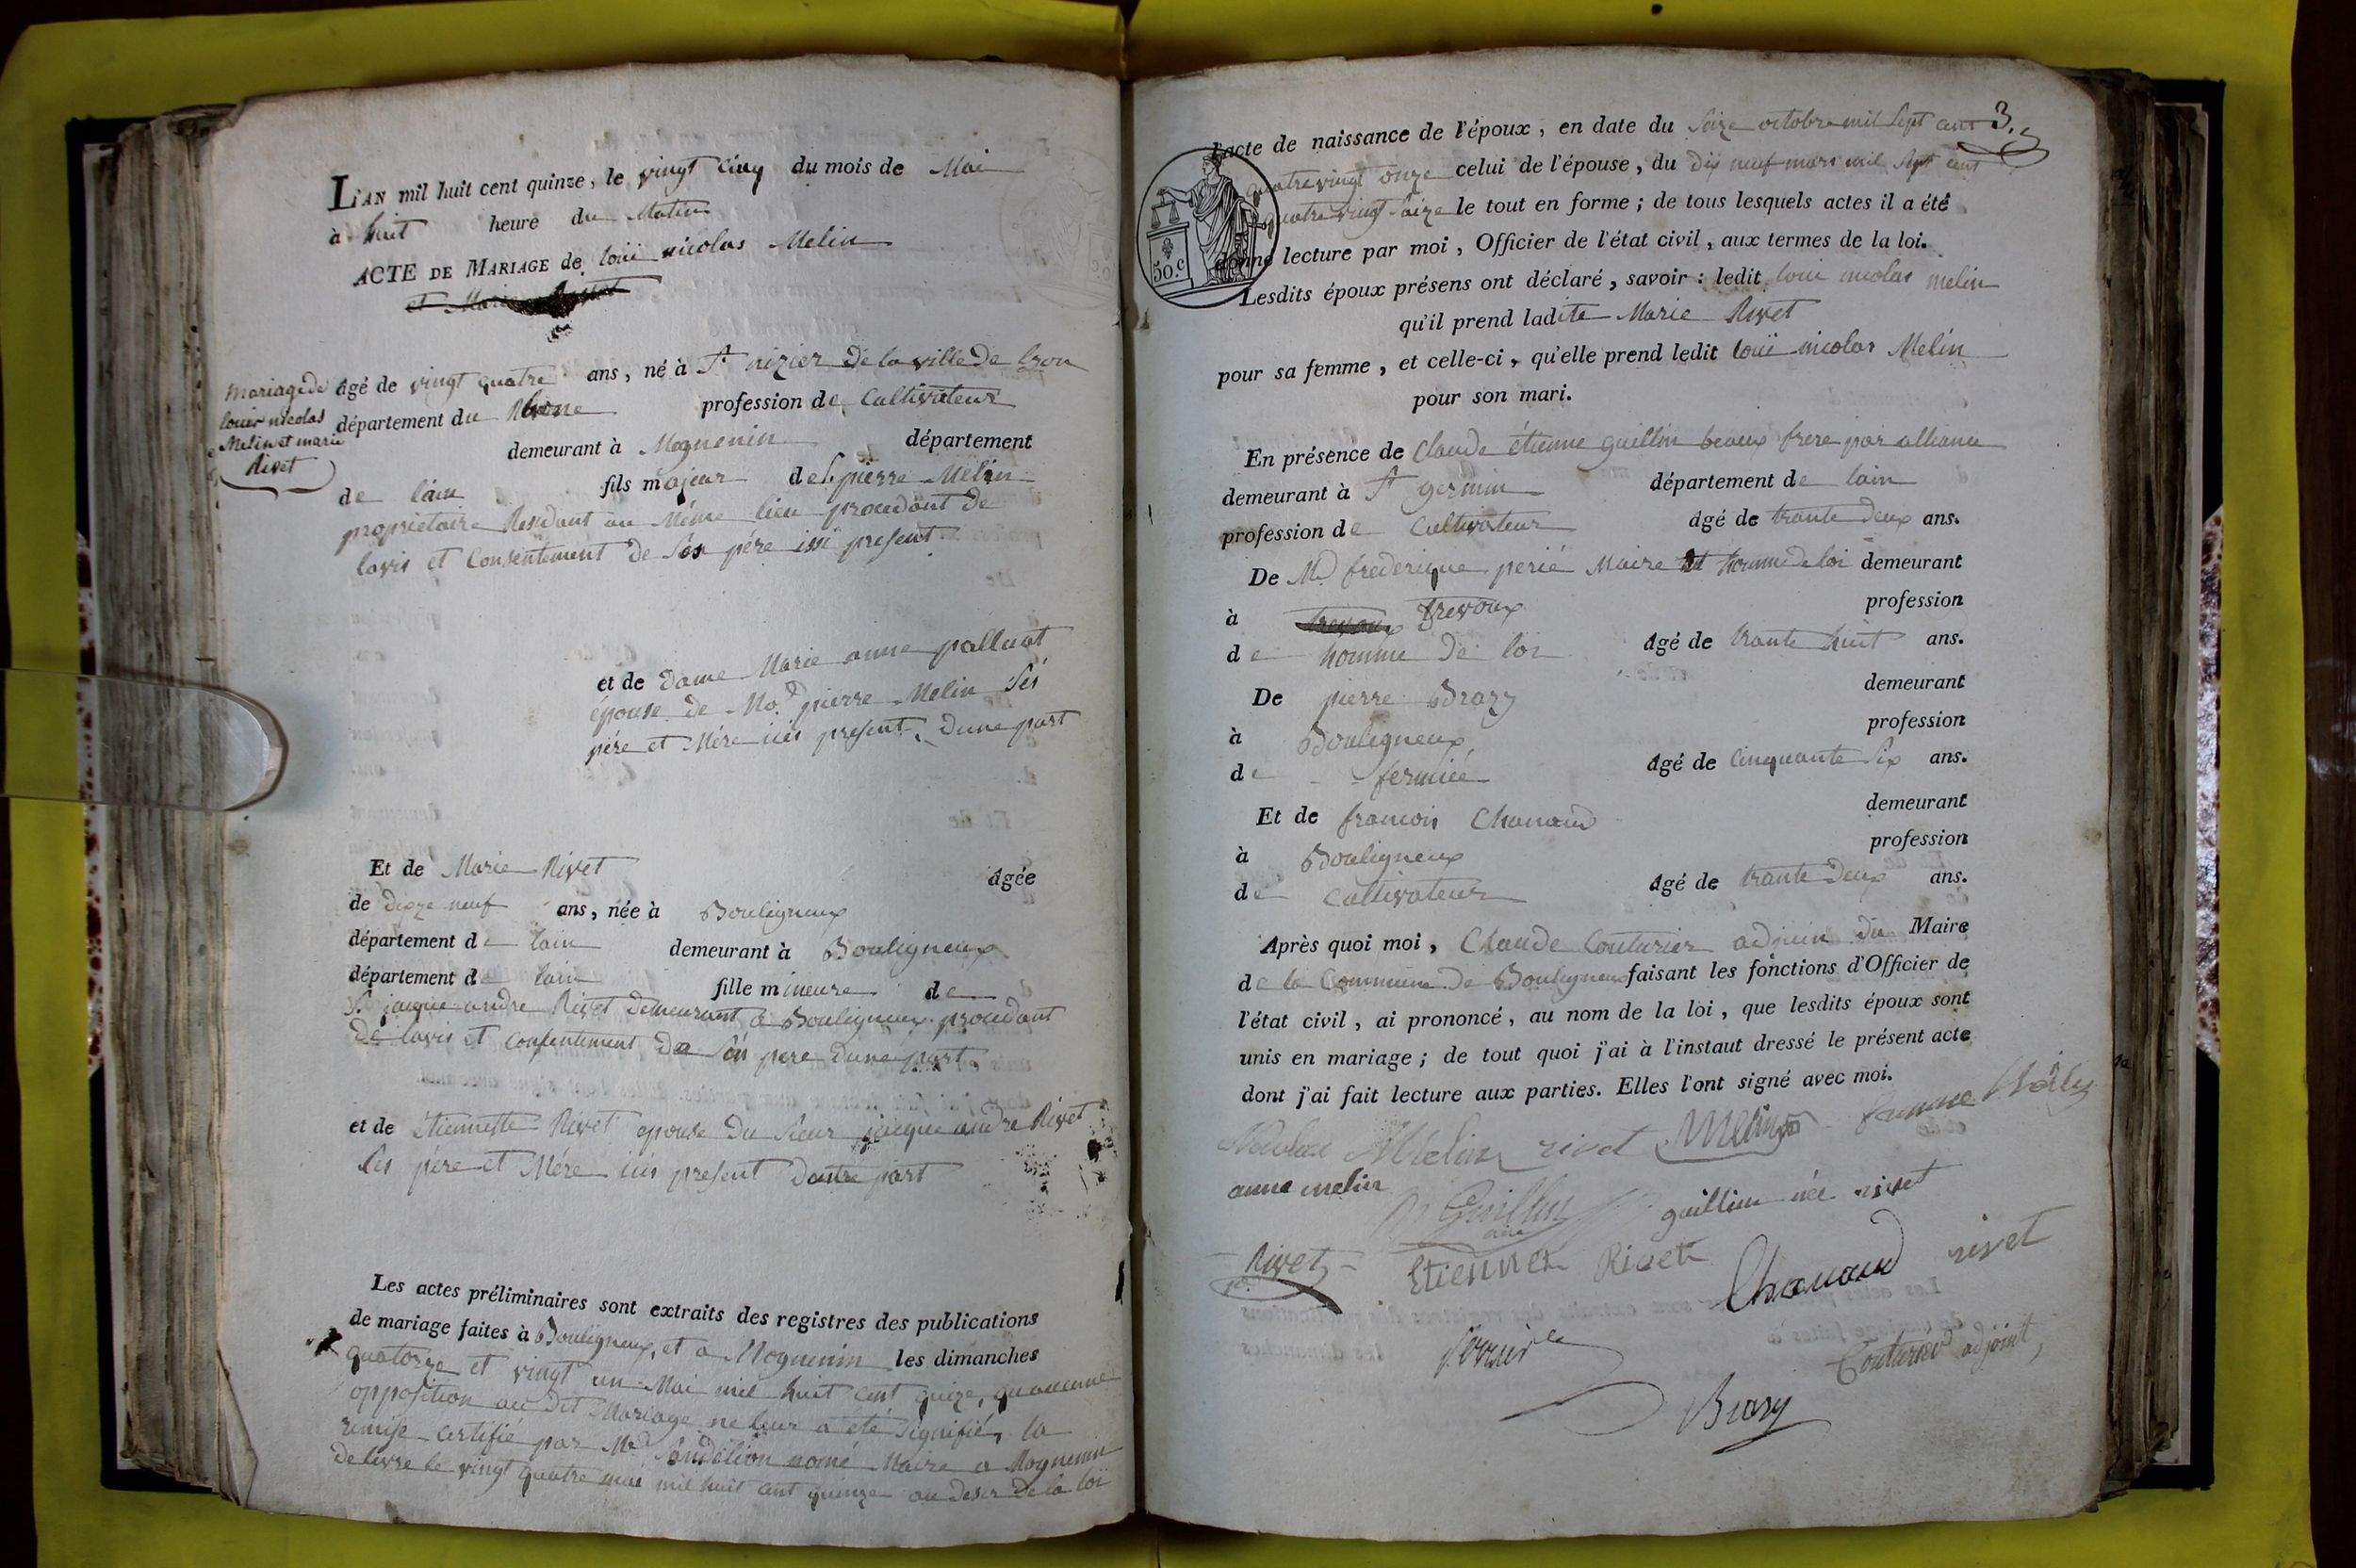 L'AN mil huit cent quinze, le vingt cinq du mois de Mai
à huit heure du Matin
ACTE DE MARIAGE de loui nicolas Melin
et Marie
Mariage de
louis nicolas
Melin et marie
Rivet
âgé de vingt quatre ans, né à St nizier de la ville de lyon
département du Rhone profession de Cultivateur
demeurant à Mognenin département
de lain fils majeur de S. pierre Melin
proprietaire Residant au Méme lieu procedant de
lavis et Consentement de Son pére issi present
et de Dame Marie anne palluat
épouse de Mo. pierre Melin Sés
pére et Mére iiés present, dune part
Et de Marie Rivet âgée
de dixze neuf ans, née à Bouligneux
département de lain demeurant à Bouligneux
département de lain fille mineure de
S. jaque andre Rivet demeurant a Bouligneux procedant
de lavis et Consentement de Son pere dune part
et de Etiennette Rivet epouse du Sieur jaque andre Rivet
Ses pére et Mére iiés present Dautre part
Les actes préliminaires sont extraits des registres des publications
de mariage faites à Bouligneux, et a Mognenin les dimanches
quatorze et vingt un Mai mil huit cent quize, quaucune
opposition au dit Mariage ne leur a été Signifié, la
remise Certifié par Mr. Sandelion nomé Maire a Mognenin
delivre le vingt quatre mai mil huit cent quinze au desir de la loi
3.
l'acte de naissance de l'époux, en date du Seize octobre mil Sept cent
quatre vingt onze celui de l'épouse, du dix neuf mars mil Sept cent
quatre vingt Seize le tout en forme; de tous lesquels actes il a été
donné lecture par moi, Officier de l'état civil, aux termes de la loi.
50.c
Lesdits époux présens ont déclaré, savoir : ledit loui nicolas melin
qu'il prend ladite Marie Rivet
pour sa femme, et celle-ci, qu'elle prend ledit loui nicolas Melin
pour son mari.
En présence de Claude étienne guillin beaux frere par alliance
demeurant à St germin département de lain
profession de Cultivateur âgé de trante deux ans.
De Mr frederique perié Maire et homme de loi demeurant
à trevoux trevoux profession
de homme de loi âgé de trante huit ans.
De pierre Brazy demeurant
à Bouligneux profession
de fermiée âgé de Cinquante Six ans.
Et de francois Chanaud demeurant
à Bouligneux profession
de Cultivateur âgé de trante deux ans.
Après quoi moi, Claude Couturier adjoin du Maire
de la Commune de Bouligneux faisant les fonctions d'Officier de
l'état civil, ai prononcé, au nom de la loi, que lesdits époux sont
unis en mariage; de tout quoi j'ai à l'instant dressé le présent acte
dont j'ai fait lecture aux parties. Elles l'ont signé avec moi.
Nicolas Melin rivet Melin femme
anne melin Guillin guillin née rivet
Rivet Etiennet Rivet Chanaud rivet
Couturier adjoint,
Brazy